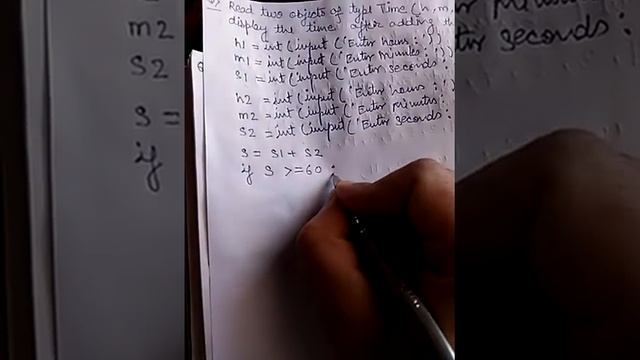 Read two objects of type Time (h, m
display the time after adding th
h1 = int (input ('Enter hours : '))
m1 = int (input ('Enter minutes : '))
s1 = int (input ('Enter seconds :
h2 = int (input ('Enter hours : ')
m2 = int (input ('Enter minutes :
s2 = int (input ('Enter seconds :
s = s1 + s2
if s >= 60 :